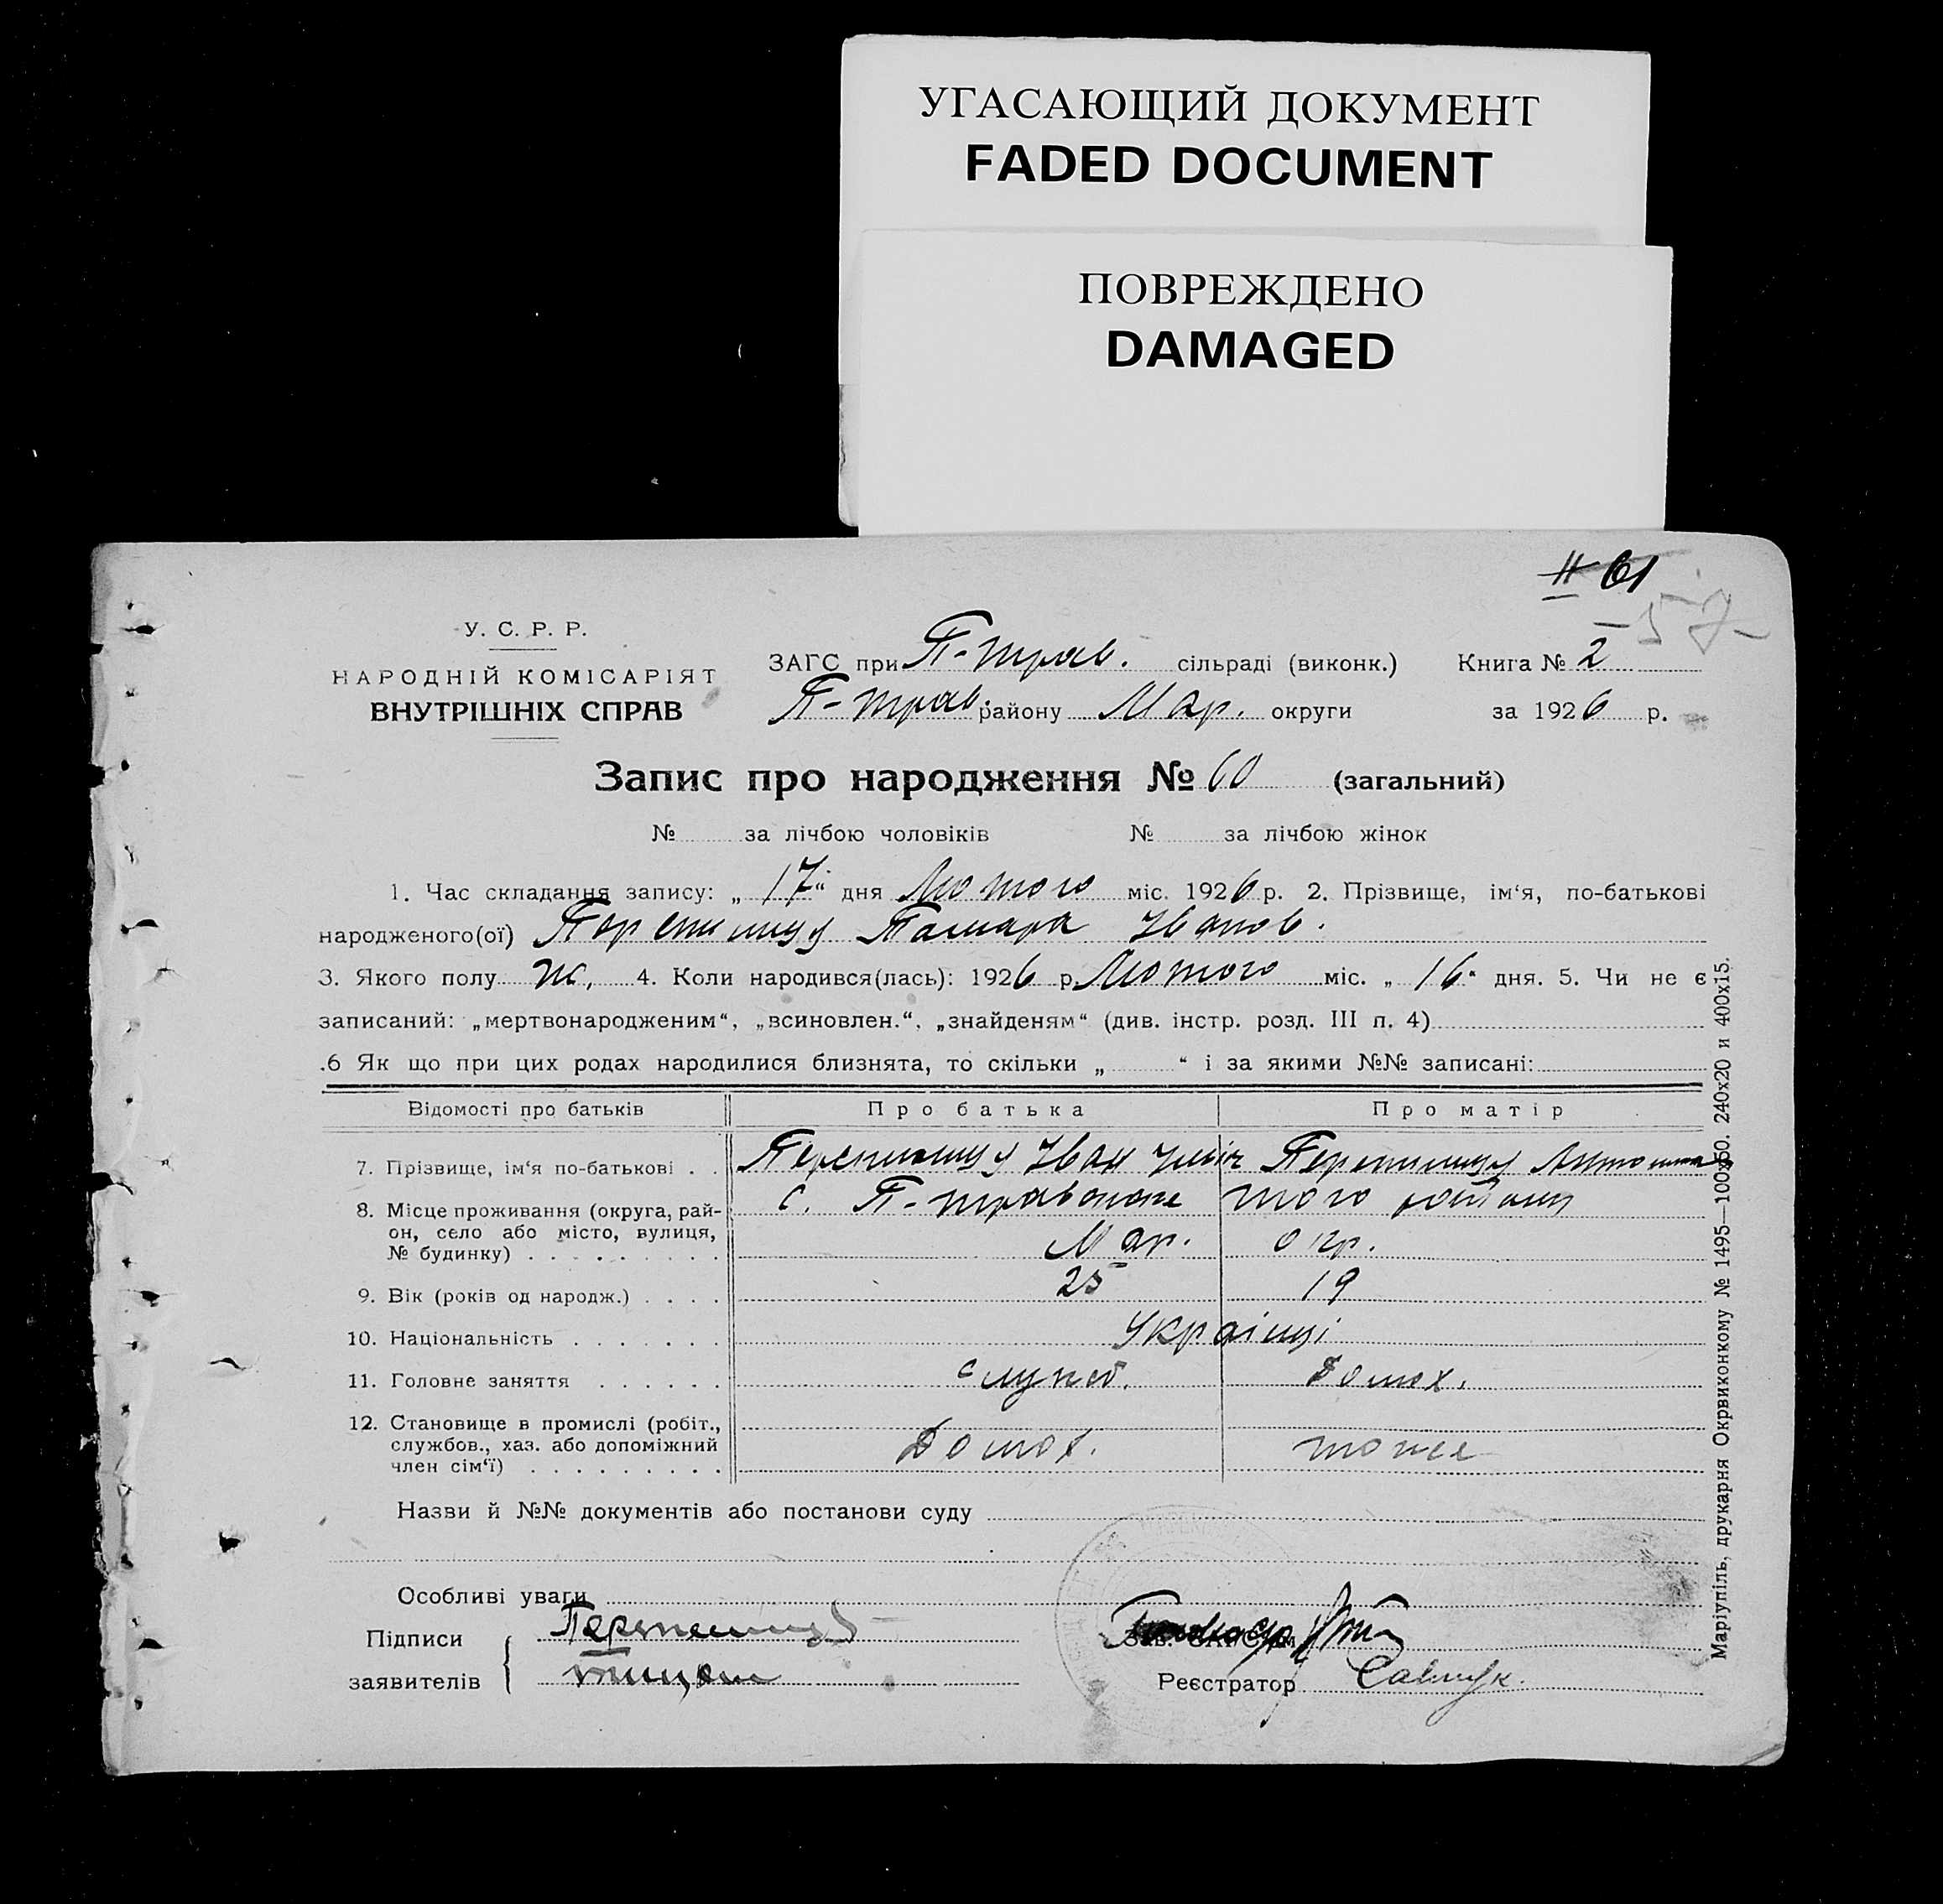 УГАСАЮЩИЙ ДОКУМЕНТ
FADED DOCUMENT
ПОВРЕЖДЕНО
DAMAGED
61
57
У. С. Р. Р.
НАРОДНІЙ КОМІСАРІЯТ
ВНУТРІШНІХ СПРАВ
ЗАГС при П-трав. сільраді (виконк.) Книга № 2
П-трав. району Мар. округи за 1926 р.
Запис про народження № 60 (загальний)
№ за лічбою чоловіків № за лічбою жінок
1. Час складання запису: „ 17 “ дня Лютого міс. 1926 р. 2. Прізвище, ім‘я, по-батькові
народженого(ої) Тамара Іванов.
3. Якого полу ж. 4. Коли народився(лась): 1926 р. Лютого міс. „ 16 “ дня. 5. Чи не є
записаний: „мертвонародженим“, „всиновлен.“, „знайденям“ (див. інстр. розд. III п. 4)
.6 Як що при цих родах народилися близнята, то скільки „ “ і за якими №№ записані:
Відомості про батьків Про батька Про матір
7. Прізвище, ім‘я по-батькові . . Іван
8. Місце проживання (округа, рай-
он, село або місто, вулиця,
№ будинку) . . . . . . . . .
с. того
Мар. окр.
9. Вік (років од народж.) . . . . 25 19
10. Національність . . . . . . . Українці
11. Головне заняття . . . . . . служб. домох.
12. Становище в промислі (робіт.,
службов., хаз. або допоміжний
член сім‘ї) . . . . . . . . . Домох. тоже
Назви й №№ документів або постанови суду
Особливі уваги
Підписи
заявителів
Реєстратор
Маріупіль, друкарня Окрвиконкому № 1495—100х50. 240х20 и 400х15.